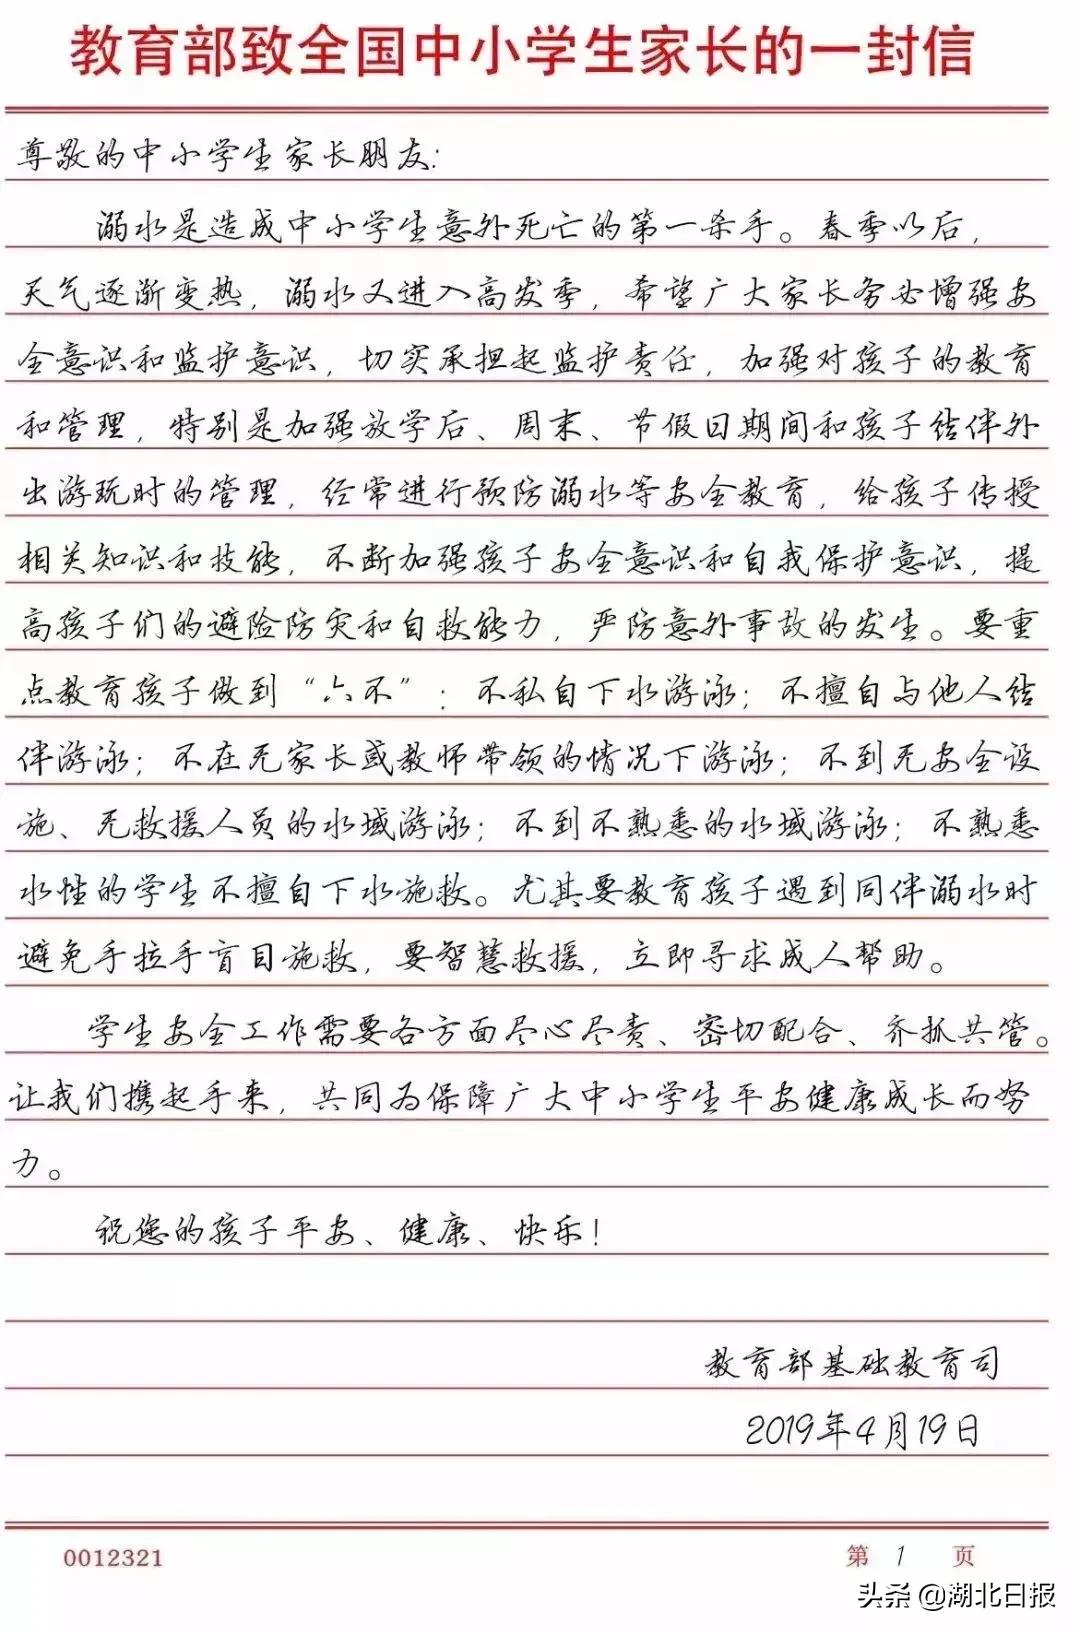 教育部致全国中小学生家长的一封信
尊敬的中小学生家长朋友:
溺水是造成中小学生意外死亡的第一杀手。春季以后,
天气逐渐变热,溺水又进入高发季,希望广大家长务必增强安
全意识和监护意识,切实承担起监护责任,加强对孩子的教育
和管理,特别是加强放学后、周末、节假日期间和孩子结伴外
出游玩时的管理,经常进行预防溺水等安全教育,给孩子传授
相关知识和技能,不断加强孩子安全意识和自我保护意识,提
高孩子们的避险防灾和自救能力,严防意外事故的发生。要重
点教育孩子做到“六不”:不私自下水游泳;不擅自与他人结
伴游泳;不在无家长或教师带领的情况下游泳;不到无安全设
施、无救援人员的水域游泳;不到不熟悉的水域游泳;不熟悉
水性的学生不擅自下水施救。尤其要教育孩子遇到同伴溺水时
避免手拉手盲目施救,要智慧救援,立即寻求成人帮助。
学生安全工作需要各方面尽心尽责、密切配合、齐抓共管。
让我们携起手来,共同为保障广大中小学生平安健康成长而努
力。
祝您的孩子平安、健康、快乐!
教育部基础教育司
2019年4月19日
0012321 第 1 页
头条 @湖北日报